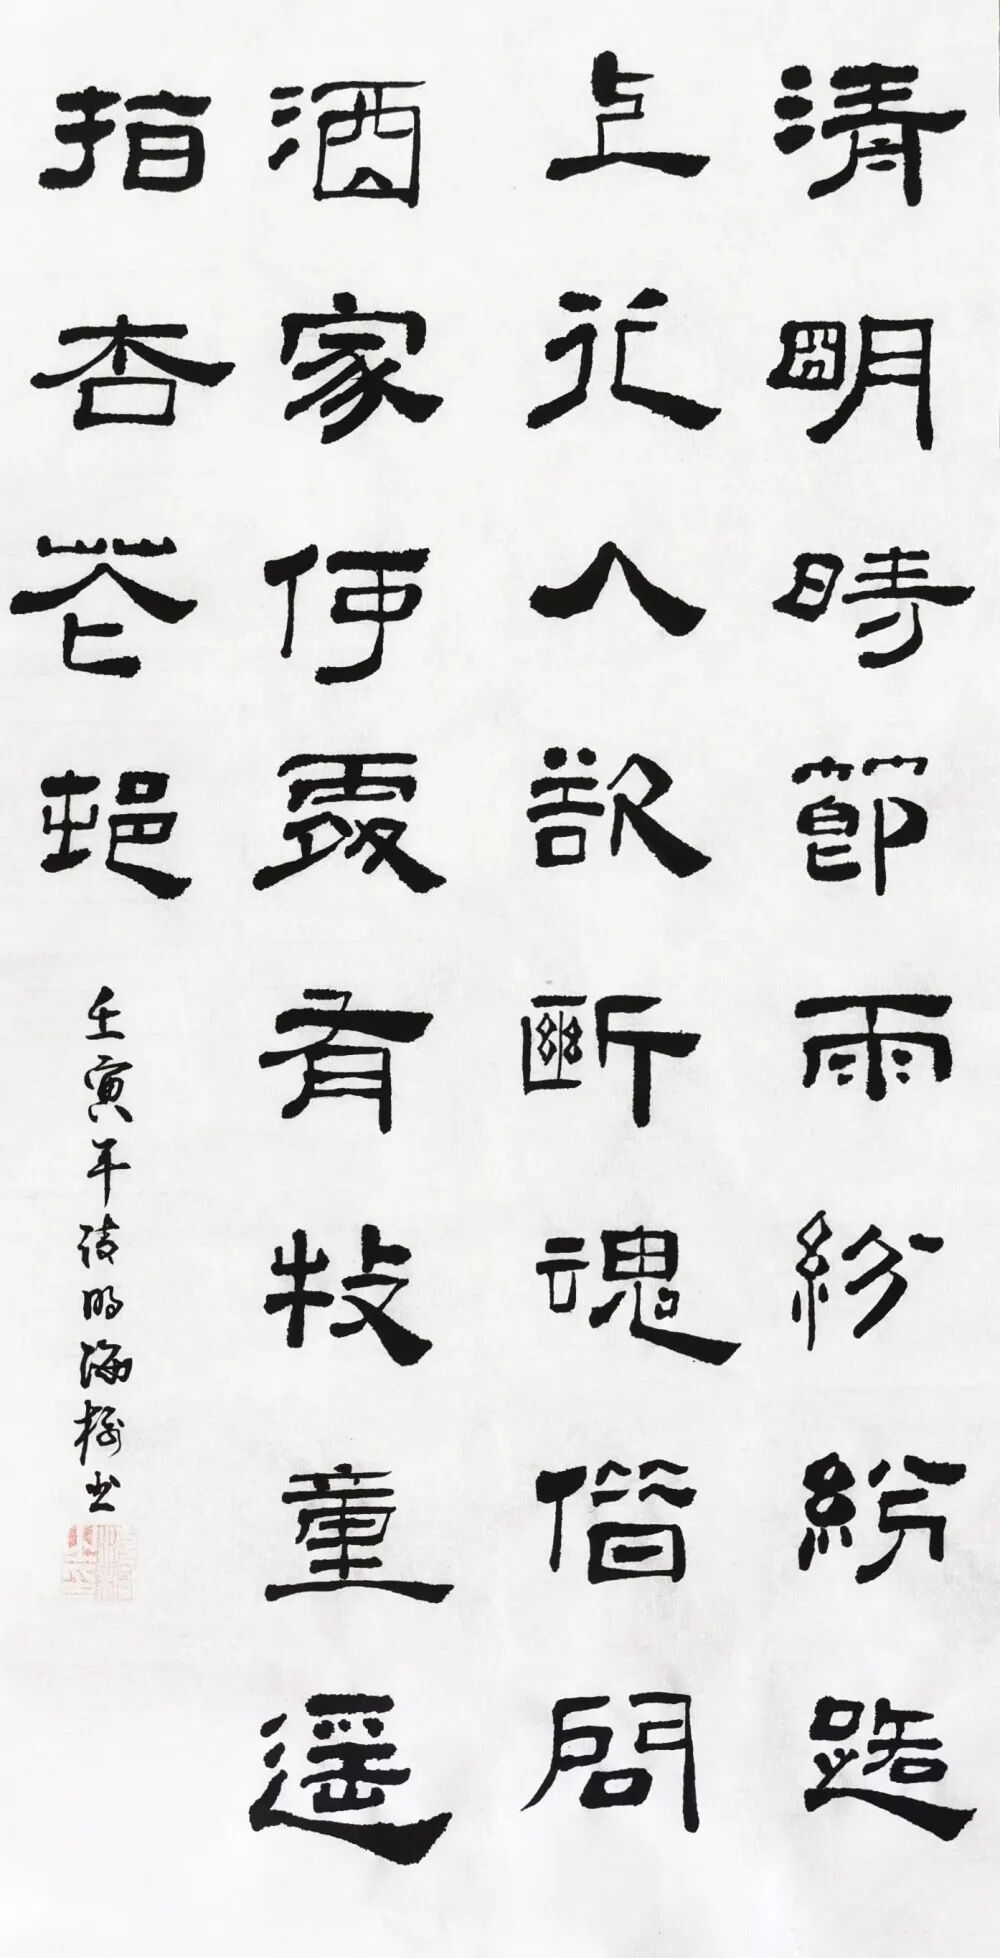 清明時節雨紛紛路
上行人欲斷魂借問
酒家何處有牧童遥
指杏花邨
壬寅年清明海书